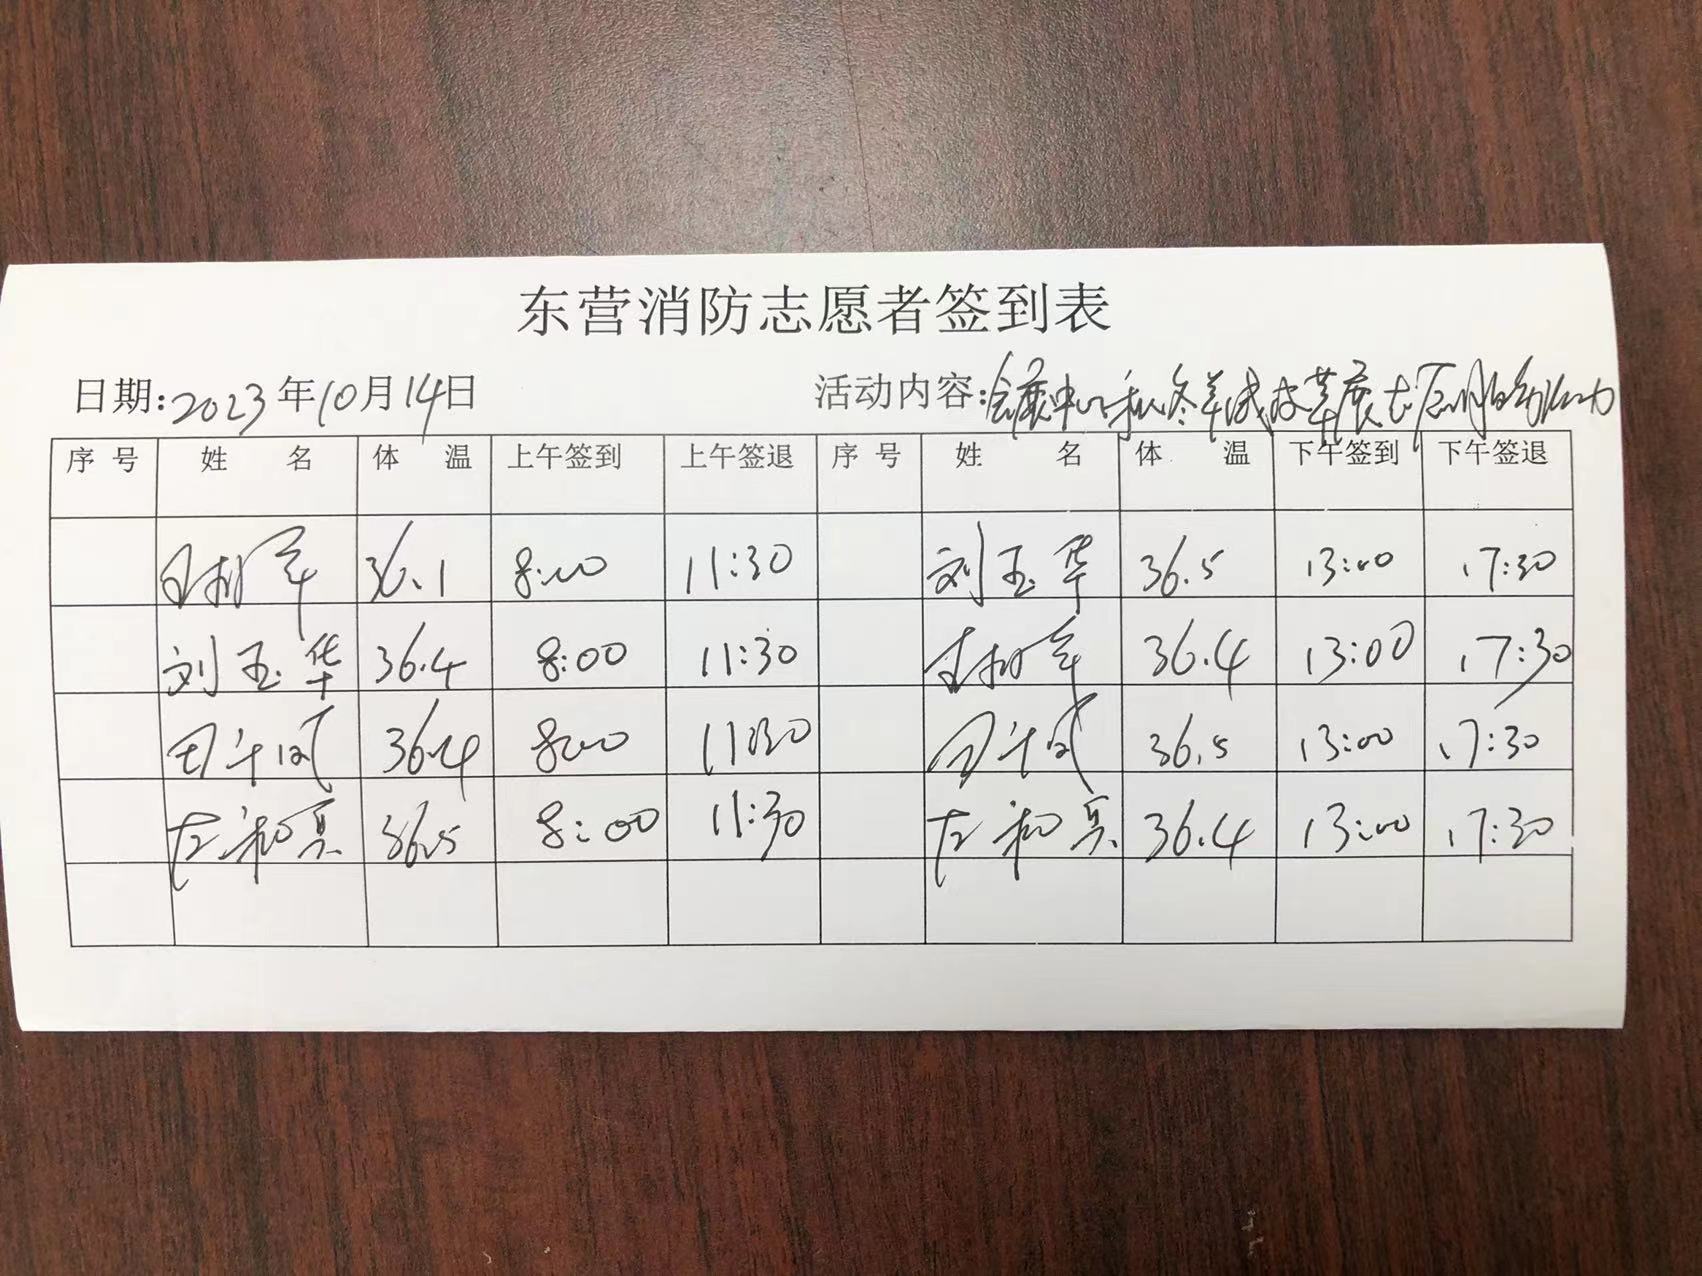 东营消防志愿者签到表
日期:2023年10月14日 活动内容:会展中心秋冬羊绒皮草展志愿服务活动
序号 姓名 体温 上午签到 上午签退 序号 姓名 体温 下午签到 下午签退
36.1 8:00 11:30 刘玉华 36.5 13:00 17:30
刘玉华 36.4 8:00 11:30 36.4 13:00 17:30
36.4 8:00 11:30 36.5 13:00 17:30
36.5 8:00 11:30 36.4 13:00 17:30